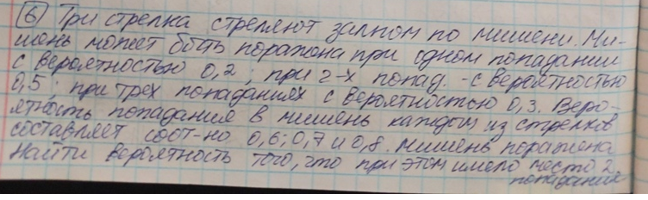 ⑥ Три стрелка стреляют залпом по мишени. Ми-
шень может быть поражена при одном попадании
с вероятностью 0,2, при 2-х попад. - с вероятностью
0,5; при трех попаданиях с вероятностью 0,3. Веро-
ятность попадания в мишень каждым из стрелков
составляет соот-но 0,6; 0,7 и 0,8. Мишень поражена
Найти вероятность того, что при этом имело место 2
попадания